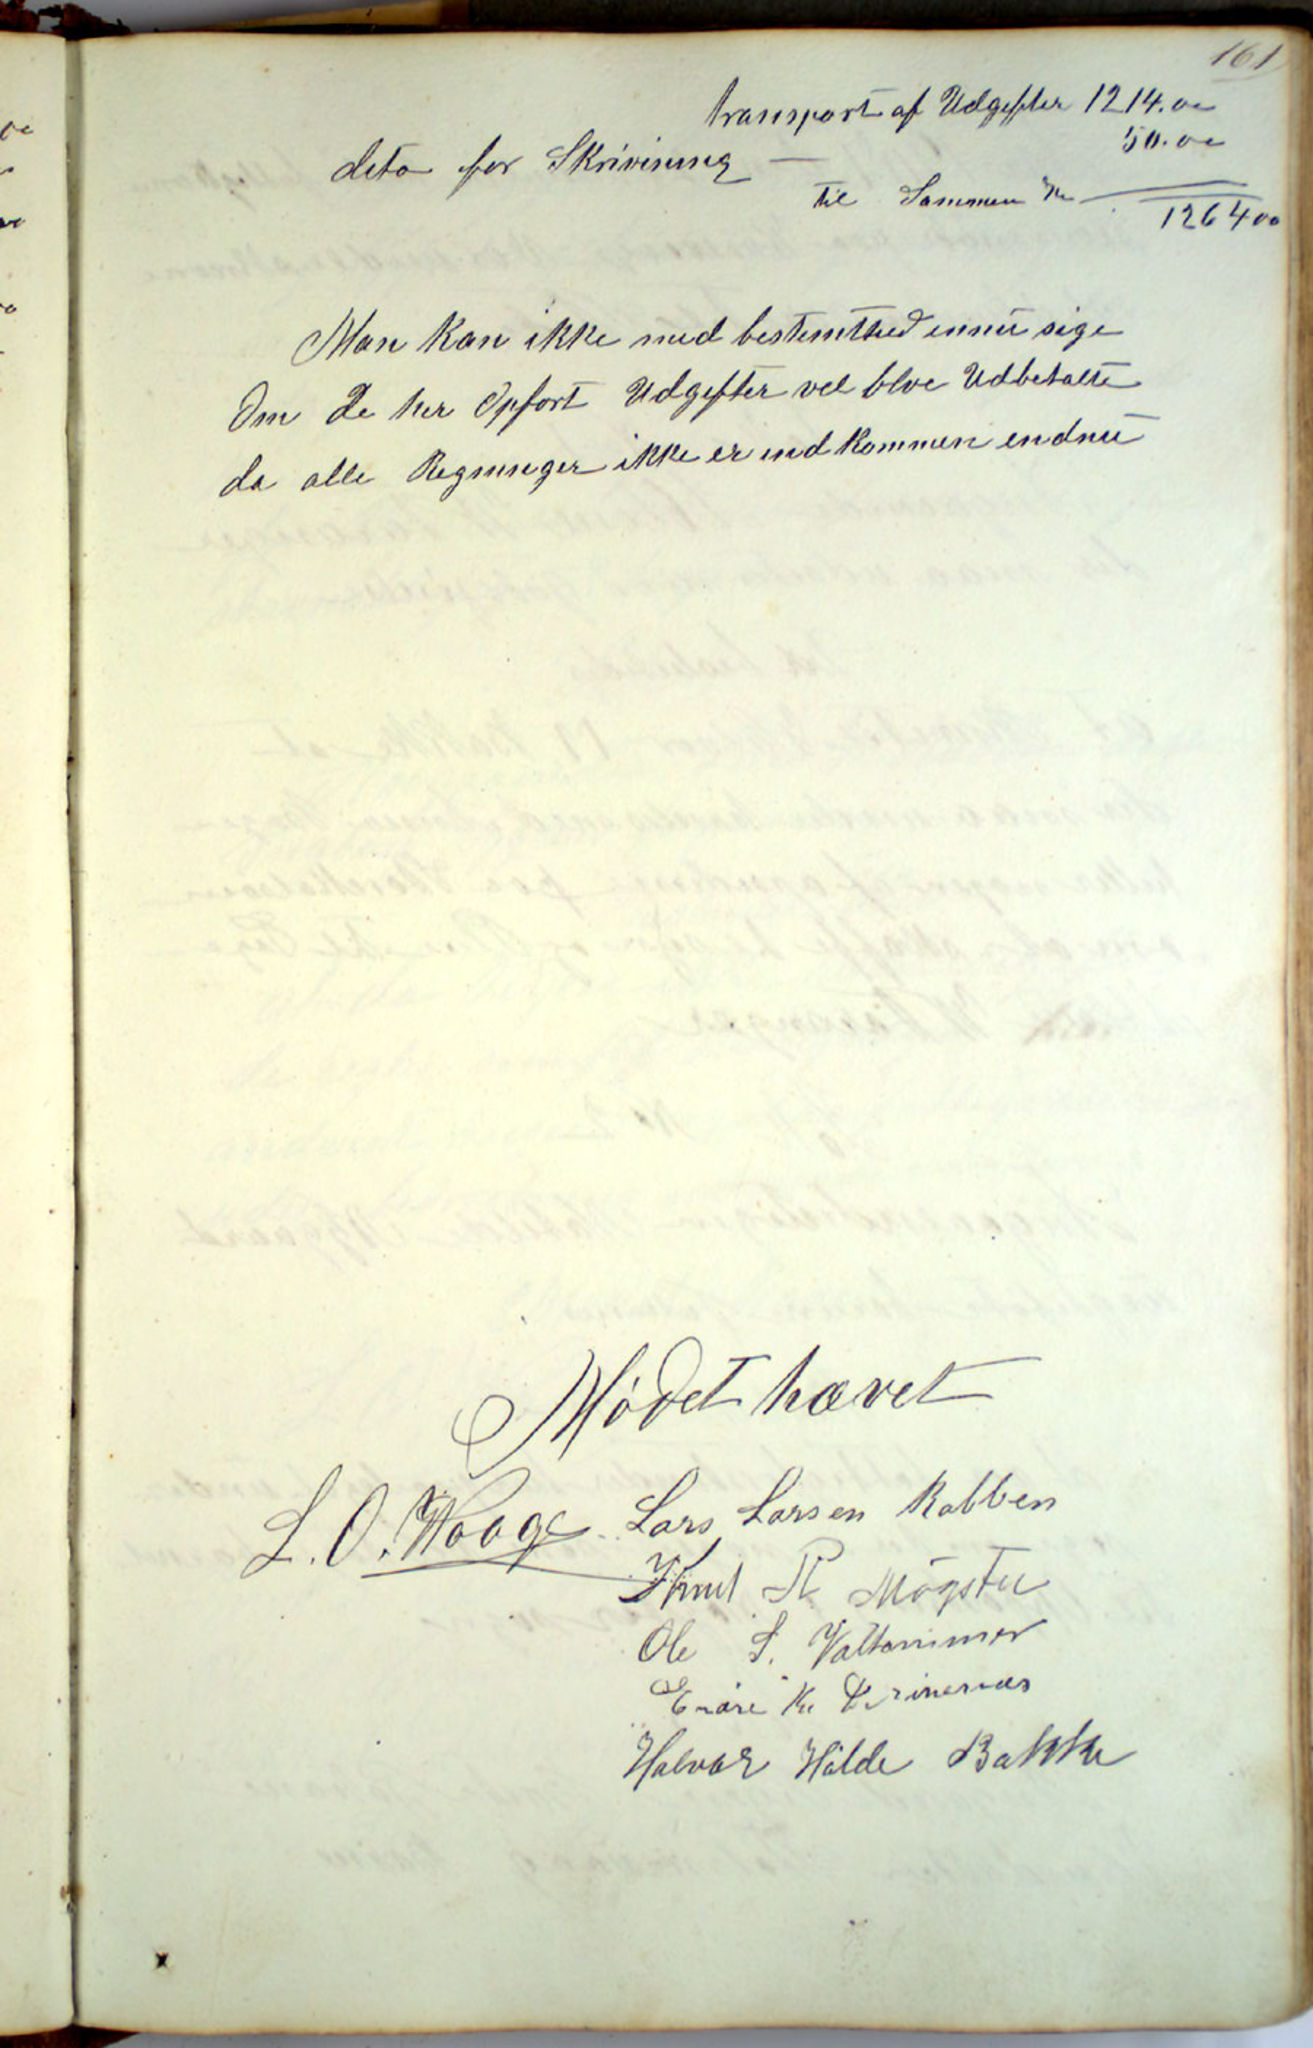 161
transport af Udgefter 1214.00
deto for Skrivinng — 50.00
til Sammen Kr 1264 00
Man kan ikke med bestemthed ennu sige
Om de her Opført Udgefter vel blve Udbetalte
da alle Regninger ikke er ind kommen endnu
Mødet hævet
L. O. Waage Lars Larsen Rabben
Knut R Møgster
Ole S. Valtammer
K.
Halvar Hilde Bakke